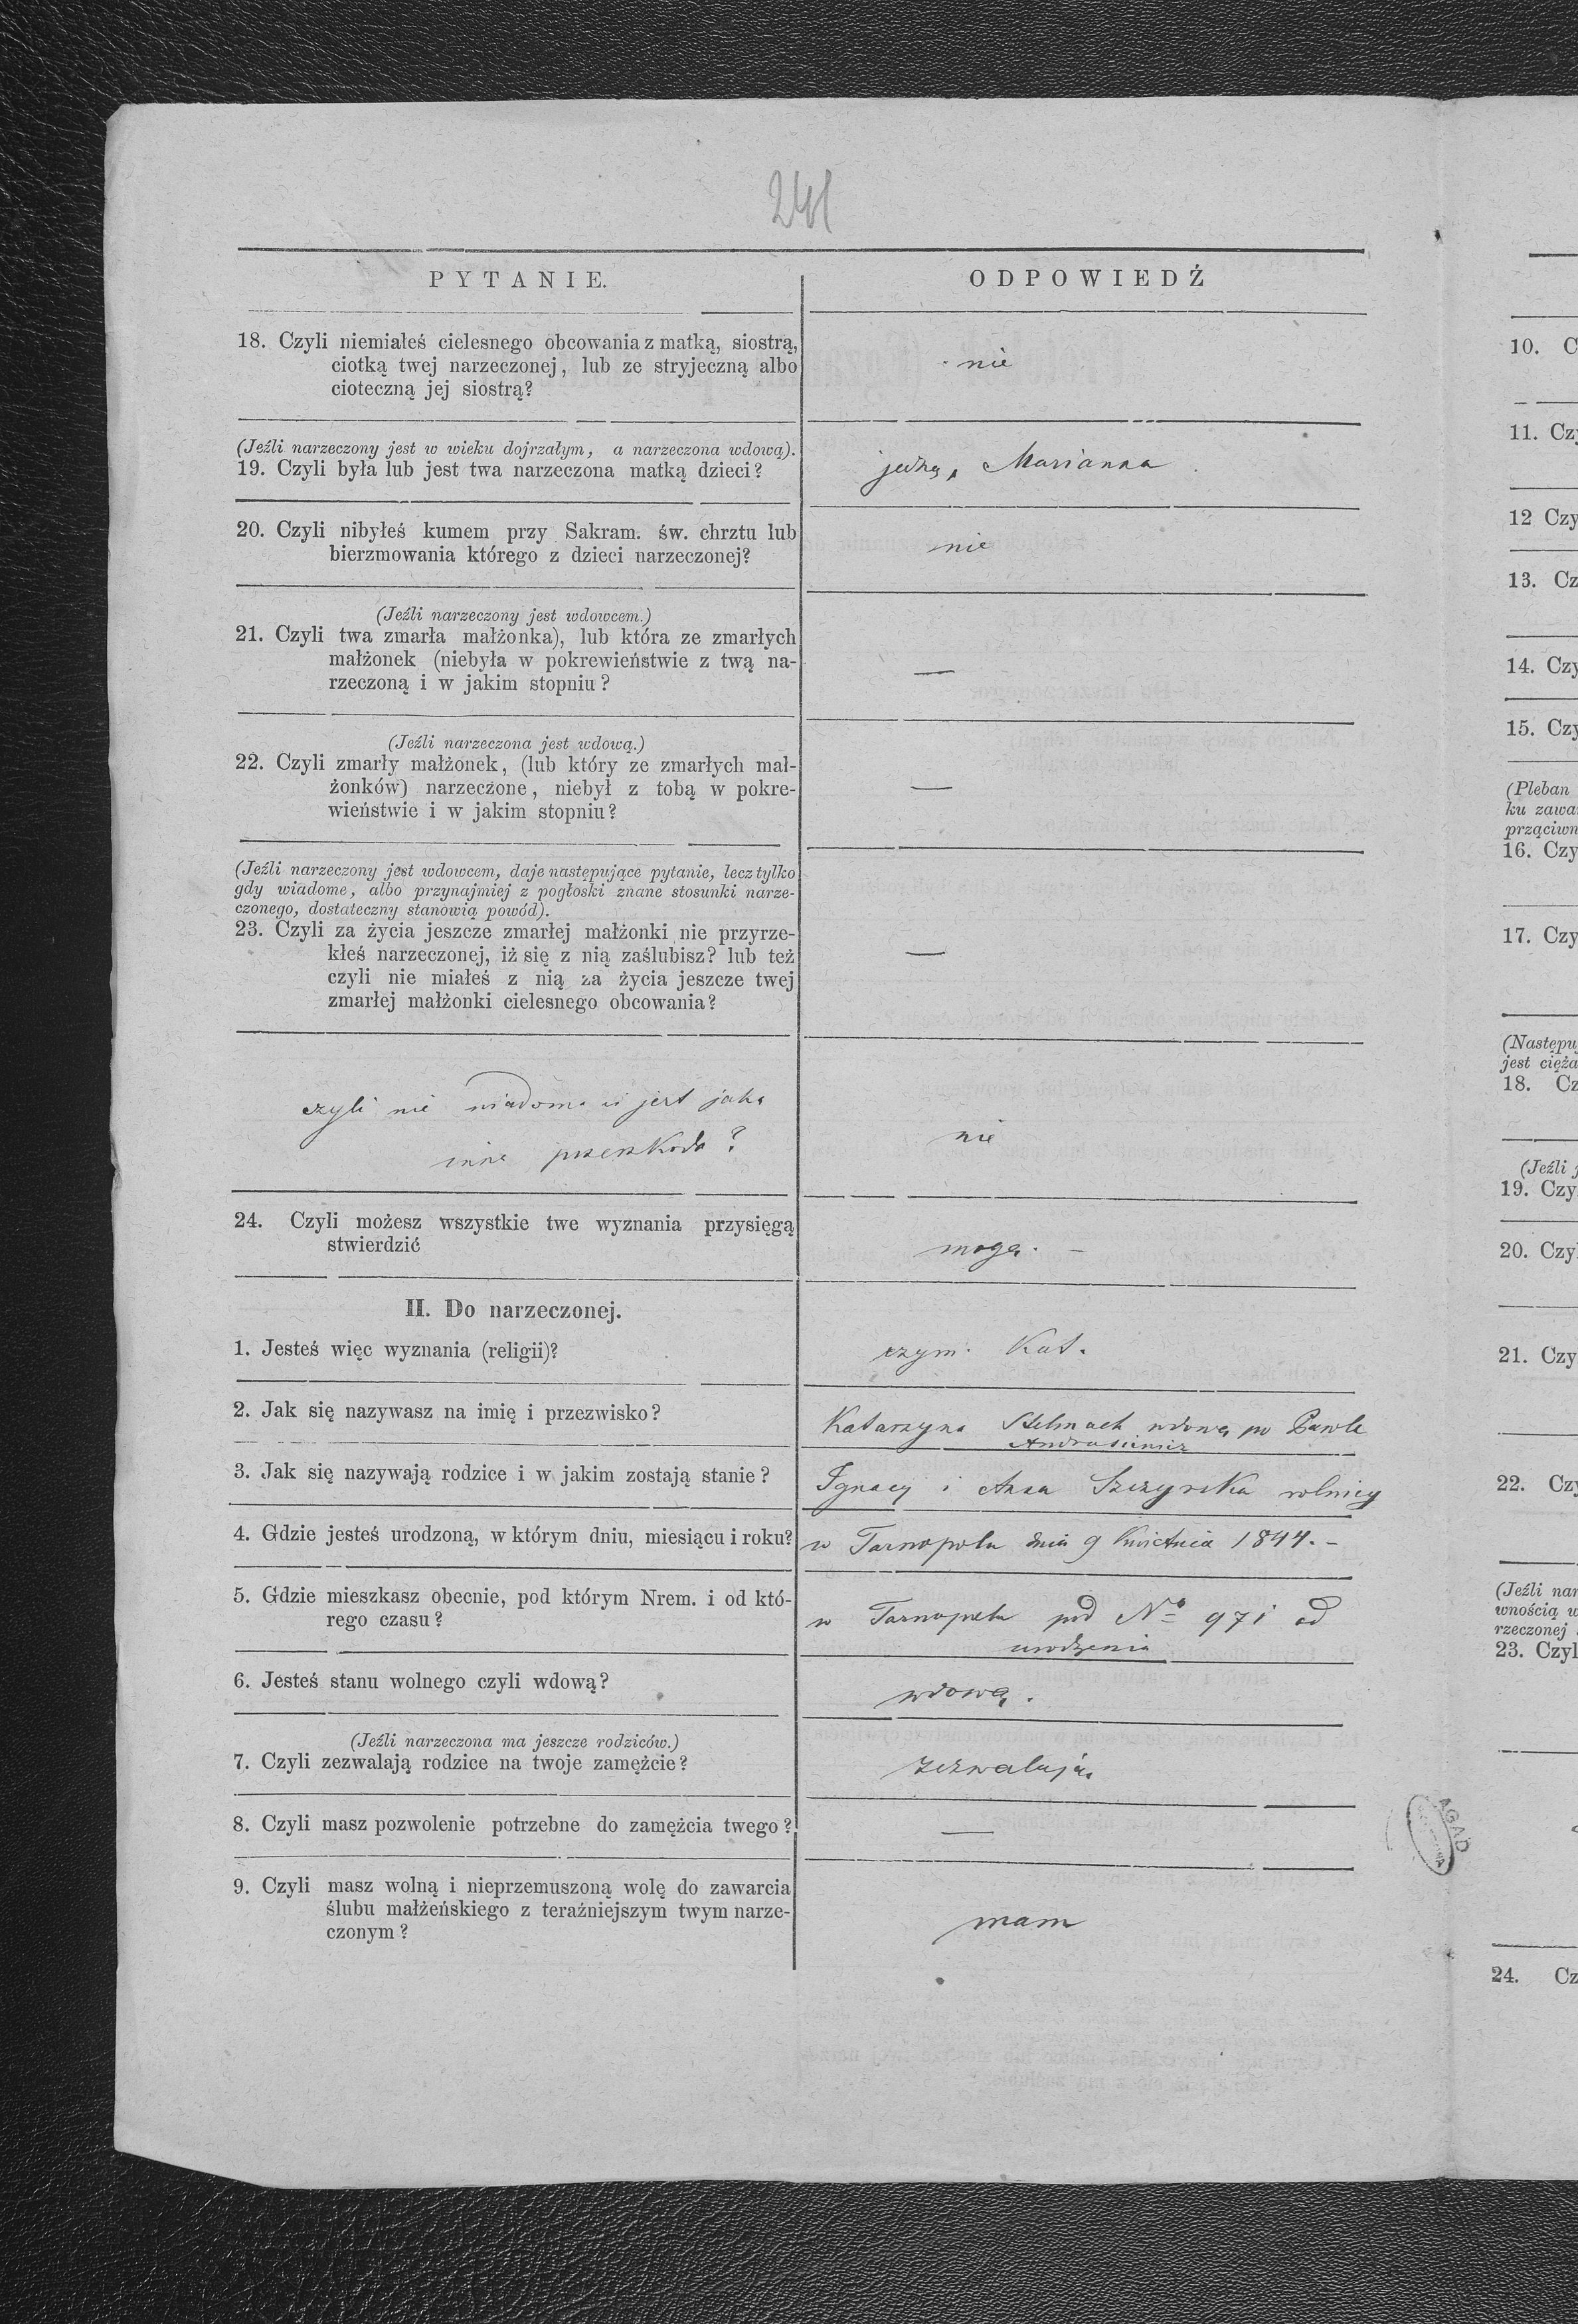 241
PYTANIE.
ODPOWIEDŹ
18. Czyli niemiałeś cielesnego obcowania z matką, siostrą,
ciotką twej narzeczonej, lub ze stryjeczną albo
cioteczną jej siostrą?
nie
(Jeźli narzeczony jest w wieku dojrzałym, a narzeczona wdową).
19. Czyli była lub jest twa narzeczona matką dzieci?
jedną, Marianna
20. Czyli nibyłeś kumem przy Sakram. św. chrztu lub
bierzmowania którego z dzieci narzeczonej?
nie
(Jeźli narzeczony jest wdowcem.)
21. Czyli twa zmarła małżonka), lub która ze zmarłych
małżonek (niebyła w pokrewieństwie z twą na-
rzeczoną i w jakim stopniu?
—
(Jeźli narzeczona jest wdową.)
22. Czyli zmarły małżonek, (lub który ze zmarłych mał-
żonków) narzeczone, niebył z tobą w pokre-
wieństwie i w jakim stopniu?
—
(Jeźli narzeczony jest wdowcem, daje następujące pytanie, lecz tylko
gdy wiadome, albo przynajmiej z pogłoski znane stosunki narze-
czonego, dostateczny stanowią powód).
23. Czyli za życia jeszcze zmarłej małżonki nie przyrze-
kłeś narzeczonej, iż się z nią zaślubisz? lub też
czyli nie miałeś z nią za życia jeszcze twej
zmarłej małżonki cielesnego obcowania?
—
czyli nie wiadoma ci jest jaka
inna przeszkoda?
nie
24. Czyli możesz wszystkie twe wyznania przysięgą
stwierdzić
mogę. –
II. Do narzeczonej.
1. Jesteś więc wyznania (religii)?
rzym. Kat.
2. Jak się nazywasz na imię i przezwisko?
Katarzyna Stelmach wdowa po Pawle
3. Jak się nazywają rodzice i w jakim zostają stanie?
Ignacy i Anna rolnicy
4. Gdzie jesteś urodzoną, w którym dniu, miesiącu i roku?
w Tarnopolu dnia 9 Kwietnia 1844. –
5. Gdzie mieszkasz obecnie, pod którym Nrem. i od któ-
rego czasu?
w Tarnopolu pod No 971 od
urodzenia
6. Jesteś stanu wolnego czyli wdową?
wdową.
(Jeźli narzeczona ma jeszcze rodziców.)
7. Czyli zezwalają rodzice na twoje zamęźcie?
zezwalają.
8. Czyli masz pozwolenie potrzebne do zamężcia twego?
—
9. Czyli masz wolną i nieprzemuszoną wolę do zawarcia
ślubu małżeńskiego z teraźniejszym twym narze-
czonym?
mam
AGAD
10. C
11. Czy
12 Czy
13. Cz
14. Czy
15. Czy
(Pleban
ku zawa
prząciwn
16. Czy
17. Czy
(Następu
jest cięża
18. Cz
(Jeźli j
19. Czy
20. Czyl
21. Czy
22. Czy
(Jeźli nar
wnością w
rzeczonej
23. Czyl
24. Cz